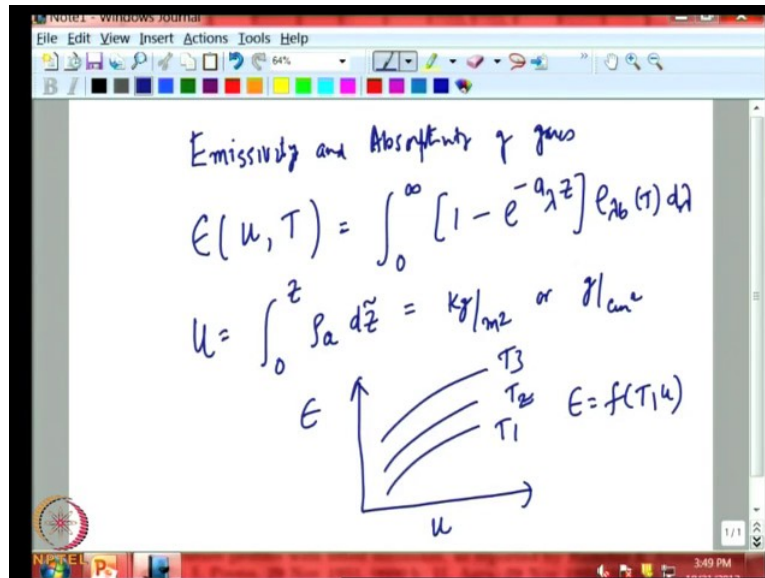 Note1 - Windows Journal
File Edit View Insert Actions Tools Help
64%
B I
Emissivity and Absorptivity of gases
ϵ(u, T) = ∫₀^∞ [1 - e^{-a_λ z}] e_{λb}(T) dλ
u = ∫₀^z ρ_a dz̃ = kg/m2 or g/cm²
T3
ϵ T2 ϵ = f(T, u)
T1
u
1/1
NPTEL
3:49 PM